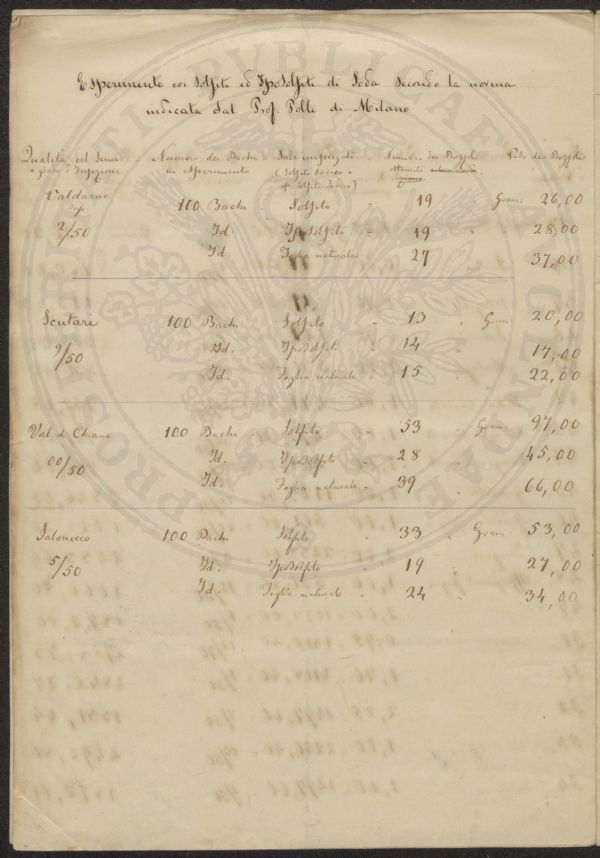 Esperimento coi Solfito ed IpoSolfiti di Soda secondo la norma
indicata dal Prof. Polli di Milano
Qualità del Seme - Numero dei Bachi - Sale impiegato - Numero dei Bozzoli - Peso dei Bozzoli
e grado d'Infezione in esperimento (Solfito Sodico o ottenuti
ipoSolfito Sodico)
Valdarno 100 Bachi Solfito " 19 Grami 26,00
2/50 Id. IpoSolfito " 19 " 28,00
Id. Foglia naturale " 27 " 37,00
Scutari 100 Bachi Solfito " 13 Grami 20,00
9/50 Id. IpoSolfito " 14 " 17,00
Id. Foglia naturale " 15 " 22,00
Val di Chiana 100 Bachi Solfito " 53 Grami 97,00
00/50 Id. IpoSolfito " 28 " 45,00
Id. Foglia naturale " 39 " 66,00
Salonicco 100 Bachi Solfito " 33 " Grami 53,00
5/50 Id. IpoSolfito " 19 " 27,00
Id. Foglia naturale " 24 " 34,00
PROSPERITATI PUBLICAE AUGENDAE